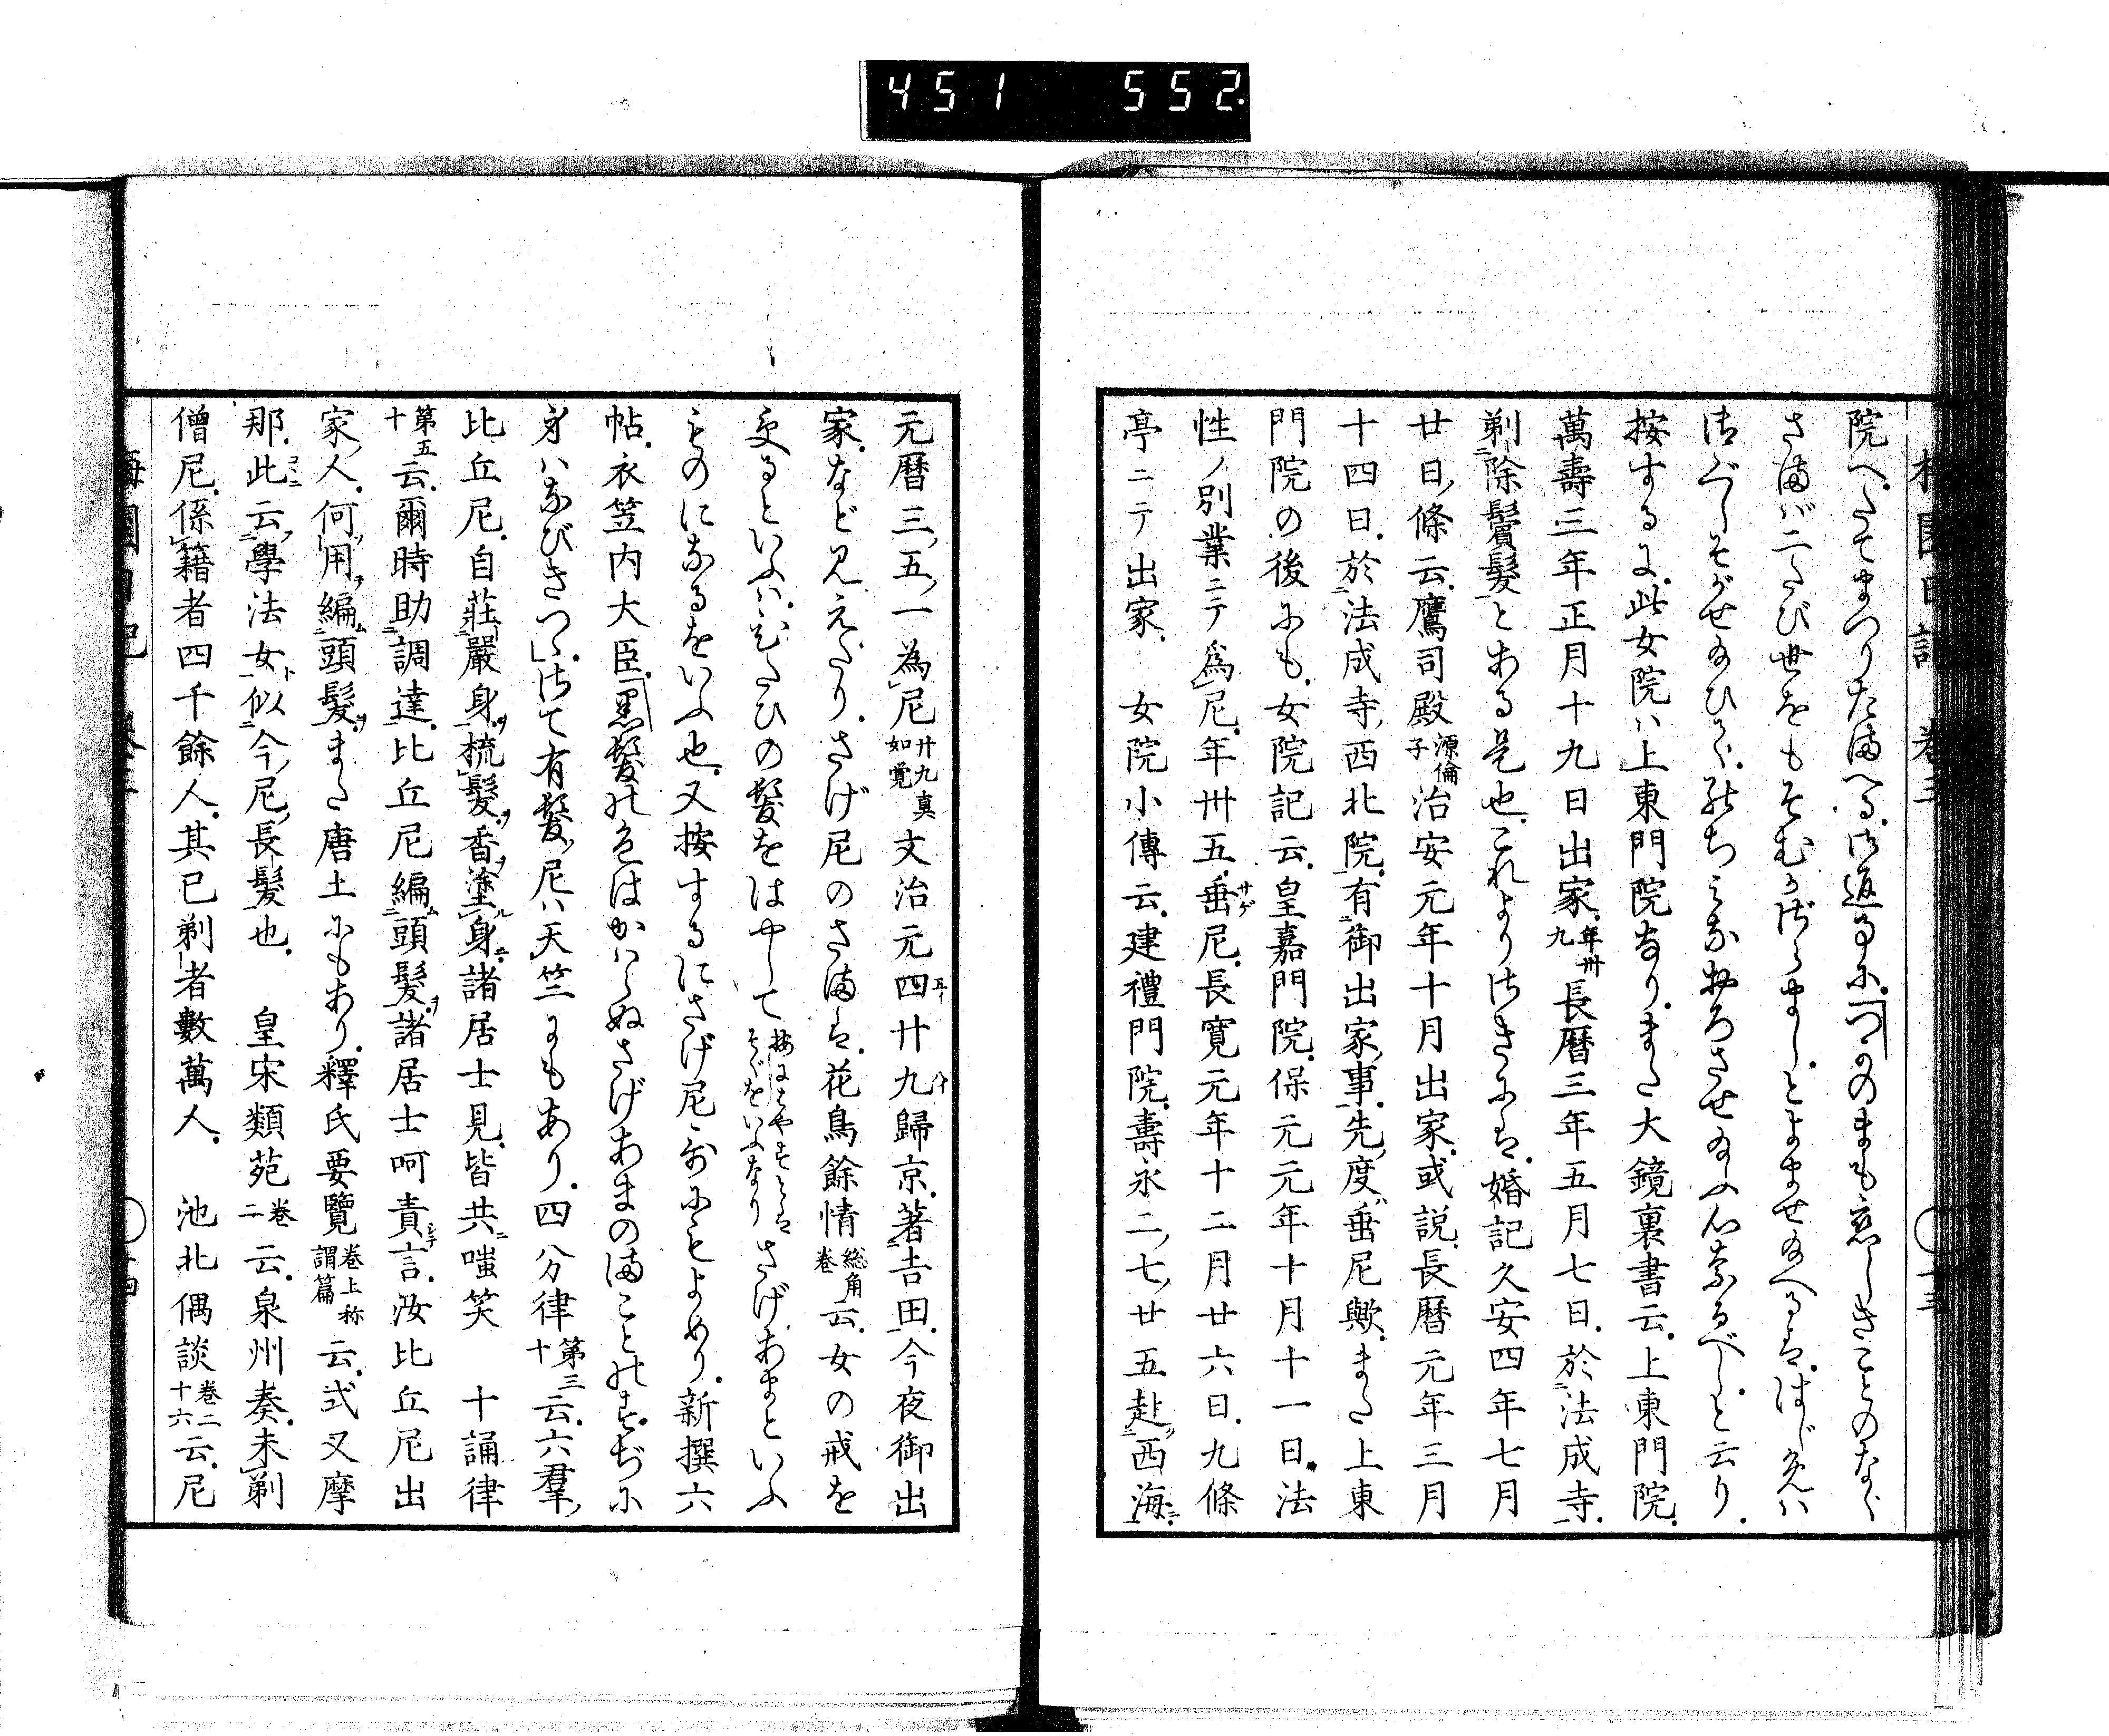 451 552
梅園日記 卷三
院へたてまつりたまへる御返事に「つかのまも恋しきことのなぐ
さまバ二たび世をもそむかざらまし」とよませ給へるは、はじめハ
御ぐしそがせ給ひて、後ちみなおろさせ給ふ心なるべし、と云り、
按するに、此女院ハ上東門院なり、また大鏡裏書云、上東門院、
萬壽三年正月十九日出家、年卅九 長暦三年五月七日、於法成寺、
剃除鬢髮とある是也、これよりさきには、婚記久安四年七月
廿日、條云、鷹司殿 源倫子 治安元年十月出家、或説、長暦元年三月
十四日、於法成寺、西北院、有御出家、事、先度垂尼歟、また上東
門院の後にも、女院記云、皇嘉門院、保元元年十月十一日、法
性ノ別業ニテ爲尼、年卅五、垂尼、長寛元年十二月廿六日、九條
亭ニテ出家、 女院小傳云、建禮門院、壽永二、七、廿五赴西海、
元暦三、五、一為尼 廿九真如覺 文治元四廿九歸京、著吉田、今夜御出
家、など見えたり、さげ尼のさまは、花鳥餘情 総角卷 云、女の戒を
受るといふハ、ひたひの髮をはやして 按にはやすとはそぐをいふなり さげあまといふ
ものになるをいふ也、又按するにさげ尼ハ哥にもよめり、新撰六
帖、衣笠内大臣、「黒髮の色はかハらぬさげあまのまことのすぢに
身ハなびきつゝ」、さて有髮、尼ハ天竺にもあり、四分律 第三十 云、六羣、
比丘尼、自莊嚴身、梳髮、香塗身、諸居士見、皆共嗤笑 十誦律
第五十 云、爾時助調達、比丘尼編頭髮、諸居士呵責言、汝比丘尼出
家、人、何用編頭髮、また唐土にもあり、釋氏要覽 卷上称謂篇 云、式叉摩
那、此云學法女、似今、尼、長髮也、 皇宋類苑 卷二 云、泉州奏、未剃
僧尼、係籍者四千餘人、其已剃者數萬人、 池北偶談 卷二十六 云、尼